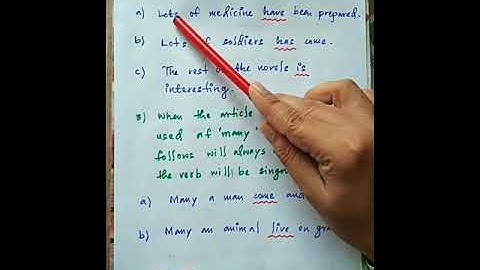 a) Lots of medicine have been prepared.
b) Lots of soldiers has come.
c) The rest of the novels is
interesting.
3) When the article
used af 'many'
follows will always
the verb will be sing
a) Many a man come and
b) Many an animal live on gra